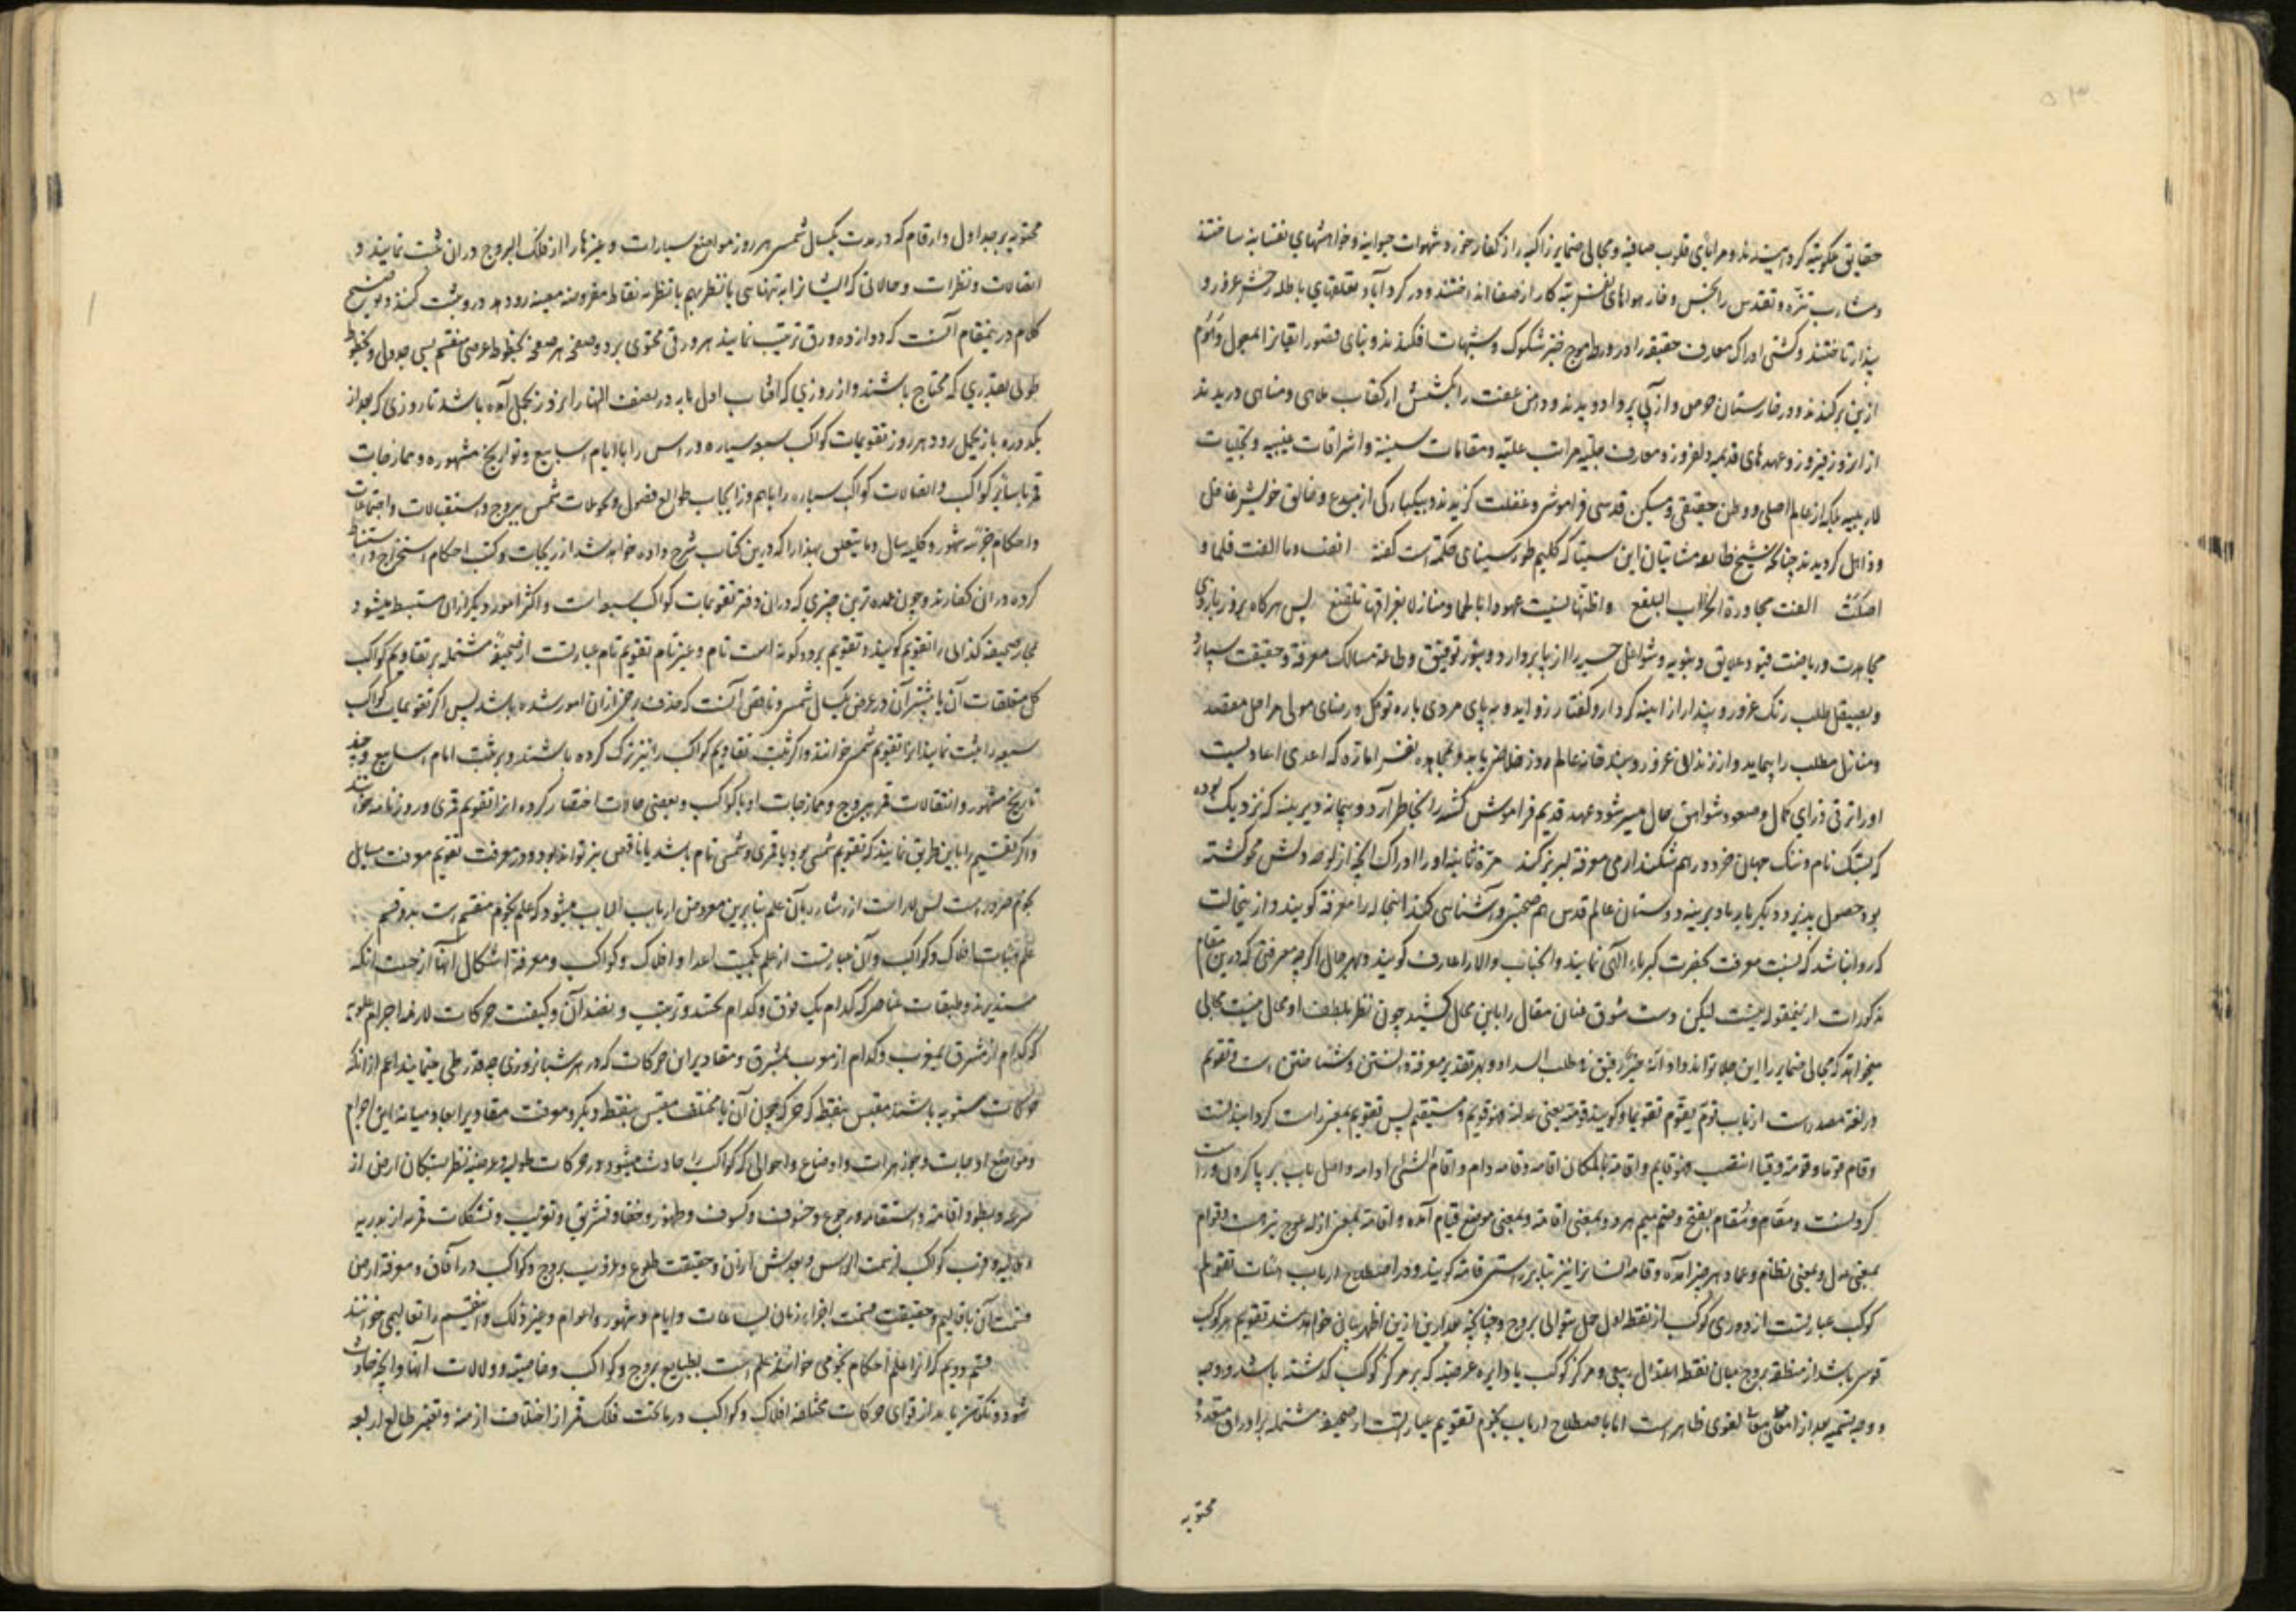 حقایق حکومیة کردانیدند و مرایای قلوب صافیه و مجالی ضمایر زاکیه را از کفار خز و شهوات حیوانیه و خواهشهای نفسانیه ساختند
و مشارب تنزه و تقدس را بخس و خار هواهای نفس تیره کار از صفا انداختند و در کرد آباد تعلقهای باطله رخش غرور و
پندار تاختند و کشتی ادراک معارف حقیقیه را در ورطه موج خیز شکوک و شبهات افکندند و بنای قصور اتقیانرا المعول
از بن برکندند و در خارستان حرص و از بی پروا دویدند و دامن عفت را بکشش ارتکاب ملاهی و مناهی دریدند
از انروز فیروز و عهدهای قدیمه دلفروز و معارف جلیه مراتب علیه و مقامات سنیه و اشراقات غیبیه و تجلیات
لاریبیه بلکه از عالم اصلی و وطن حقیقی و مسکن قدسی فراموش و غفلت کزیدند و بیکبارکی از مبدع و خالق خویش غافل
و ذاهل کردیدند چنانکه شیخ طایفه مشائیان ابن سینا که کلیم طور سینای حکمتست کفته انفت و ما الفت فلما و
اصلت الفت مجاورة الخراب البلقع و اظنها نسیت عهودا بالحما و منازلا بفراقها لم تقنع پس هرکاه بزور بازوی
مجاهدت و ریاضت قیود علایق دنیویه و شواغل حسیه را از پا بردارد و بنور توفیق و طاعة مسالک معرفة و حقیقت سپارد
و بصیقل طلب زنک غرور و پندار از اینه کردار و کفتار زداید و به پای مردی باره توکل و رضای مولی مراحل مقصد
و منازل مطلب را پیماید و از زندان غرور و پندخانه عالم دوز خلاص یابد و بمجاهده نفس اماره که اعدی اعادیست
او را ترقی ذرای کمال و صعود شواهق حال میسر شود و عهد قدیم فراموش کشته را بخاطر آرد و پیمانه دیرینه که نزدیک بوده
که بسنک نام و ننک جهان خرد در هم شکند از می معرفة لبریز کند مرة ثانیه او را ادراک انچه از لوح دلش محو کشته
بود حصول پذیرد و دیکر بار با دیرینه دوستان عالم قدس هم صحبتی و آشنایی کند اینحاله را معرفة کویند و از اینجاست
که روا نباشد که نسبت معرفت بحضرت کبریاء الهی نمایند و انجناب والا را عارف کویند و بهر حال اکرچه معرفتی که درین مقام
مذکورات ازینمقوله نیست لیکن دست شوق عنان مقال را باین مجال کشید چون نظر بلطف او محال نیست مجالی
میخواهد که مجالی ضمایر را این جلا تواند داد انه خیر رفیق نه طلب السداد و بهر تقدیر معرفة دانستن و شناختن است و تقویم
در لغة مصدرست از باب قوم یقوم تقویما و کویند قومته یعنی عدلته فهو قویم و مستقیم پس تقویم بمعنی راست کردانیدنست
و قام قوما و قومة و قیاما انتصب فهو قایم و اقامة بالمکان اقامه و قامه دام و اقام الشئی ادامه و اصل باب بر پا کردن و راست
کردنست و مقام و مقام بفتح و ضم میم هر دو بمعنی اقامة و بمعنی موضع قیام آمده و اقامة بمعنی ازاله عوج نیز هست و قوام
بمعنی عدل و بمعنی نظام و عماد هر چیز آمده و قامة انسانرا نیز بنا بر راستی قامة کویند و در اصطلاح ارباب اثبات تقویم
کوکب عبارتست از دوری کوکب از نقطه اول حمل بتوالی بروج و چنانچه بعد ازین اظهر بیانی خواهد شد تقویم هر کوکب
قوسی باشد از منطقه بروج میان نقطه اعتدال ربیعی و مرکز کوکب یا دایره عرضیه که بر مرکز کوکب کذشته باشد و وجه
و وجه تسمیه بعد از امعان بمعانی لغوی ظاهرست اما باصطلاح ارباب نجوم تقویم عبارتست از صحیفه مشتمله بر اوراق متعدده
محتویه
محتویه بر جداول و ارقام که در مدت یکسال شمسی هر روز مواضع سیارات و غیرها را از فلک البروج در ان ثبت نمایند و
اتصالات و نظرات و حالاتی که ایشانرا به تنهایی یا بنظر بهم یا بنظر به نقاط مفروضه معینه رو دهد درو ثبت کنند و توضیح
کلام درینمقام آنست که دوازده ورق ترتیب نمایند هر ورقی محتوی بر دو صفحه هر صفحه بخطوط عرضی منقسم بسی جدول و بخطوط
طولی بقدری که محتاج باشند و از روزی که افتاب اول بار در نصف النهار انروز بحمل آمده باشد تا روزی که بعد از
یکدوره باز بحمل رود هر روز تقویمات کواکب سبعه سیاره و راس را با ایام اسابیع و تواریخ مشهوره و ممازجات
قمر با سایر کواکب و اتصالات کواکب سیاره را با هم و زایجات طوالع فصول و تحویلات شمس ببروج و استقبالات و اجتماعات
و احکام جزئیه شهور و کلیه سال و ما یتعلق بهذا را که درین کتاب شرح داده خواهد شد از زیجات و کتب احکام استخراج و استنباط
کرده در ان کفارند و چون عمده ترین چیزی که در ان دفتر تقویمات کواکب سبعه است و اکثر امور دیکر ازان مستنبط میشود
مجازا صحیفه کذائی را تقویم کویند و تقویم بر دو کونه است تام و غیر تام تقویم تام عبارتست از صحیفه مشتمله بر تقاویم کواکب
کل متعلقات آن یا بیشتر آن در عرض یکسال شمسی و ناقص آنست که حذف برخی ازان امور شده باشد پس اکر تقویمات کواکب
سبعه را ثبت نمایند انرا تقویم شمسی خوانند و اکر ثبت تقاویم کواکب را نیز ترک کرده باشند و بر ثبت ایام اسابیع و چند
تاریخ مشهور و انتقالات قمر ببروج و ممازجات او با کواکب و بعضی حالات اختصار کرده انرا تقویم قمری و روزنامه خوانند
و اکر تقسیم را باین طریق نمایند که تقویم شمسی بود یا قمری و شمسی تام باشد یا ناقص نیز تواند بود و در معرفت تقویم معرفت مسایل
نجوم ضرورست پس لابدست از اشاره بآن علم بنابرین معروض ارباب الباب میشود که علم نجوم منقسم است بدو قسم
علم هیئات افلاک و کواکب و آن عبارتست از علم بکمیت اعداد افلاک و کواکب و معرفة اشکال آنها از حیث انکه
مستدیرند و طبقات عناصر که کدام یک فوق و کدام تحتند و ترتیب و نضد آن و کیفیت حرکات لازمه اجرام علویه
که کدام از مشرق بمغرب و کدام از مغرب بمشرق و مقادیر این حرکات که در هر شبانروزی چه قدر طی مینمایند اعم از انکه
حرکات مستویه باشند مقیس بنقطه که حرکه چون آن یا مختلف مقیس بنقطه دیکر و معرفت مقادیر ابعاد میانه این اجرام
و مواضع اوجات و جوزهرات و اوضاع و احوالی که کواکب را حادث میشود در حرکات طولیه و عرضیه بنظر ساکنان ارض از
سرعه و بطؤ و اقامة و استقامه و رجوع و خسوف و کسوف و ظهور و خفا و تشریق و تغریب و تشکلات قمر از بدریه
و هلالیه و قرب کواکب از سمت الراس و بعدش از آن و حقیقت طلوع و غروب بروج و کواکب در آفاق و معرفة ارض
قسمت آن باقالیم و حقیقت قسمت اجزاء زمان بساعات و ایام و شهور و اعوام و غیر ذلک و اینقسم را تعالیمی خوانند
قسم دویم که انرا علم احکام نجومی خوانند علم است بطبایع بروج و کواکب و خاصیة و دلالات آنها و انچه حادث
شود و تکون یابد از قوای حرکات مختلفه افلاک و کواکب در ما تحت فلک قمر از اختلاف ازمنه و تغیر طبایع اربعه